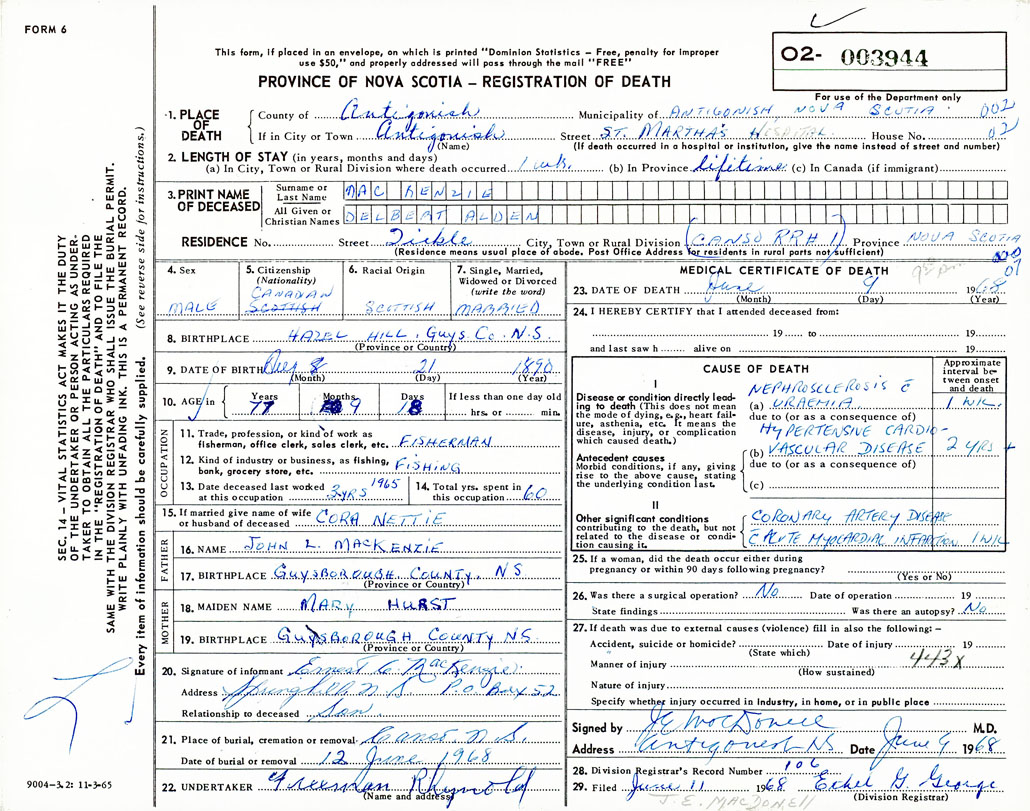 FORM 6
This form, if placed in an envelope, on which is printed "Dominion Statistics – Free, penalty for improper
use $50," and properly addressed will pass through the mail "FREE"
PROVINCE OF NOVA SCOTIA – REGISTRATION OF DEATH
O2- 003944
For use of the Department only
1. PLACE OF DEATH
County of Antigonish Municipality of ANTIGONISH, NOVA SCOTIA 002
If in City or Town Antigonish Street ST. MARTHA'S HOSPITAL House No. 02
(Name) (If death occurred in a hospital or institution, give the name instead of street and number)
2. LENGTH OF STAY (in years, months and days)
(a) In City, Town or Rural Division where death occurred 1 wk. (b) In Province lifetime (c) In Canada (if immigrant)
3. PRINT NAME OF DECEASED
Surname or Last Name MAC KENZIE
All Given or Christian Names DELBERT ALDEN
RESIDENCE No. Street Tickle City, Town or Rural Division (CANSO RR#1) Province NOVA SCOTIA
(Residence means usual place of abode. Post Office Address for residents in rural parts not sufficient)
07
4. Sex
MALE
5. Citizenship
(Nationality)
CANADIAN
SCOTTISH
6. Racial Origin
SCOTTISH
7. Single, Married,
Widowed or Divorced
(write the word)
MARRIED
8. BIRTHPLACE HAZEL HILL, Guys Co. N.S.
(Province or Country)
9. DATE OF BIRTH 8 21 1890
(Month) (Day) (Year)
10. AGE in Years Months Days If less than one day old
77 9 18 hrs. or min.
OCCUPATION
11. Trade, profession, or kind of work as
fisherman, office clerk, sales clerk, etc. FISHERMAN
12. Kind of industry or business, as fishing,
bank, grocery store, etc. FISHING
13. Date deceased last worked
at this occupation 3 YRS 1965
14. Total yrs. spent in
this occupation 60
15. If married give name of wife
or husband of deceased CORA NETTIE
FATHER
16. NAME JOHN L. MACKENZIE
17. BIRTHPLACE GUYSBOROUGH COUNTY, NS
(Province or Country)
MOTHER
18. MAIDEN NAME MARY HURST
19. BIRTHPLACE GUYSBOROUGH COUNTY NS
(Province or Country)
20. Signature of informant Ernest C. MacKenzie
Address Springhill N S P.O. Box 52
Relationship to deceased Son
21. Place of burial, cremation or removal Canso N.S.
Date of burial or removal 12 June 1968
22. UNDERTAKER Freeman Rhynold
(Name and address)
MEDICAL CERTIFICATE OF DEATH
23. DATE OF DEATH June 9 1968
(Month) (Day) (Year)
24. I HEREBY CERTIFY that I attended deceased from:
19 to 19
and last saw h alive on 19
CAUSE OF DEATH
Approximate
interval be-
tween onset
and death
I
Disease or condition directly lead-
ing to death (This does not
mean the mode of dying, e.g., heart fail-
ure, asthenia, etc. It means the
disease, injury, or complication
which caused death.)
NEPHROSCLEROSIS c̄
(a) URAEMIA 1 WK.
due to (or as a consequence of)
HYPERTENSIVE CARDIO-
(b) VASCULAR DISEASE 2 YRS +
due to (or as a consequence of)
(c)
Antecedent causes
Morbid conditions, if any, giving
rise to the above cause, stating
the underlying condition last.
II
Other significant conditions
contributing to the death, but not
related to the disease or condi-
tion causing it.
CORONARY ARTERY DISEASE
C ACUTE MYOCARDIAL INFARTION 1 WK
25. If a woman, did the death occur either during
pregnancy or within 90 days following pregnancy?
(Yes or No)
26. Was there a surgical operation? No Date of operation 19
State findings Was there an autopsy? No
27. If death was due to external causes (violence) fill in also the following: –
Accident, suicide or homicide? Date of injury 19
(State which)
443X
Manner of injury
(How sustained)
Nature of injury
Specify whether injury occurred in industry, in home, or in public place
Signed by J E MacDonell M.D.
Address Antigonish NS Date June 9 1968
28. Division Registrar's Record Number 106
29. Filed June 11 1968 Ethel G. George
(Division Registrar)
J. E. MACDONELL
SEC. 14 – VITAL STATISTICS ACT MAKES IT THE DUTY
OF THE UNDERTAKER OR PERSON ACTING AS UNDER-
TAKER TO OBTAIN ALL THE PARTICULARS REQUIRED
IN THE "REGISTRATION OF DEATH" AND TO FILE THE
SAME WITH THE DIVISION REGISTRAR WHO SHALL ISSUE THE BURIAL PERMIT.
WRITE PLAINLY WITH UNFADING INK. THIS IS A PERMANENT RECORD.
Every item of information should be carefully supplied. (See reverse side for instructions.)
9004-3.2: 11-3-65